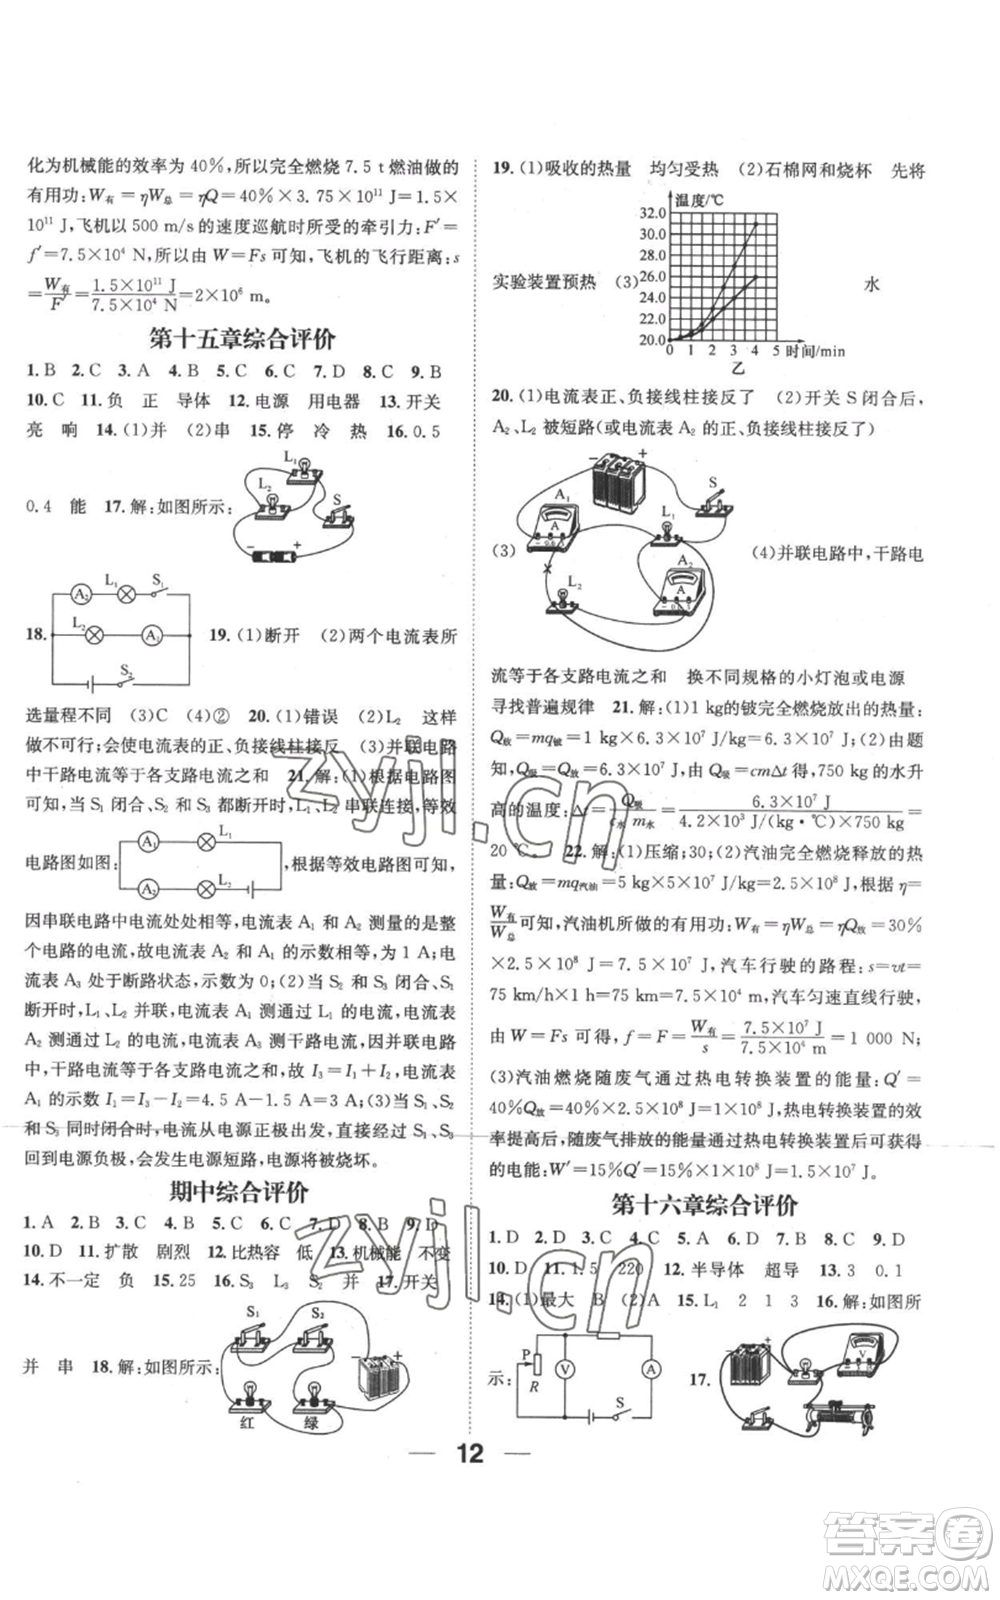 化为机械能的效率为 40%,所以完全燃烧 7.5 t 燃油做的
有用功:W有=ηW总=ηQ=40%×3.75×10¹¹ J=1.5×
10¹¹ J,飞机以 500 m/s 的速度巡航时所受的牵引力:F′
=f=7.5×10⁴ N,所以由 W=Fs可知,飞机的飞行距离:s
=W有/F′=1.5×10¹¹ J/7.5×10⁴ N=2×10⁶ m。
第十五章综合评价
1.B 2.C 3.A 4.B 5.C 6.B 7.D 8.C 9.B
10.C 11.负 正 导体 12.电源 用电器 13.开关
亮 响 14.(1)并 (2)串 15.停 冷 热 16.0.5
0.4 能 17.解:如图所示:
L₁
L₂
S
− +
18.
A₂ L₁ S₁
L₂ A₃
S₂
19.(1)断开 (2)两个电流表所
选量程不同 (3)C (4)② 20.(1)错误 (2)L₂ 这样
做不可行;会使电流表的正、负接线柱接反 (3)并联电路
中干路电流等于各支路电流之和 21.解:(1)根据电路图
可知,当 S₁ 闭合、S₂ 和 S₃ 都断开时,L₁、L₂ 串联连接,等效
电路图如图:
A₁ L₁
A₂ L₂
,根据等效电路图可知,
因串联电路中电流处处相等,电流表 A₁ 和 A₂ 测量的是整
个电路的电流,故电流表 A₂ 和 A₁ 的示数相等,为 1 A;电
流表 A₃ 处于断路状态,示数为 0;(2)当 S₂ 和 S₃ 闭合、S₁
断开时,L₁、L₂ 并联,电流表 A₁ 测通过 L₁ 的电流,电流表
A₂ 测通过 L₂ 的电流,电流表 A₃ 测干路电流,因并联电路
中,干路电流等于各支路电流之和,故 I₃=I₁+I₂,电流表
A₁ 的示数 I₁=I₃−I₂=4.5 A−1.5 A=3 A;(3)当 S₁
和 S₃ 同时闭合时,电流从电源正极出发,直接经过 S₁、S₃
回到电源负极,会发生电源短路,电源将被烧坏。
期中综合评价
1.A 2.B 3.C 4.B 5.C 6.C 7.D 8.B 9.D
10.D 11.扩散 剧烈 12.比热容 低 13.机械能 不变
14.不一定 负 15.25 16.S₃ L₃ S₂ 并 17.开关
并 串 18.解:如图所示:
S₁ S₂
− +
红 绿
19.(1)吸收的热量 均匀受热 (2)石棉网和烧杯 先将
实验装置预热 (3)
温度/℃
32.0
30.0
28.0
26.0
24.0
22.0
20.0
0 1 2 3 4 5 时间/min
乙
水
20.(1)电流表正、负接线柱接反了 (2)开关 S 闭合后,
A₂、L₂ 被短路(或电流表 A₂ 的正、负接线柱接反了)
(3)
− +
A₁ S
A L₁
− 0.6 3
L₂ A₂
A
(4)并联电路中,干路电
流等于各支路电流之和 换不同规格的小灯泡或电源
寻找普遍规律 21.解:(1)1 kg的铍完全燃烧放出的热量:
Q放=mq铍=1 kg×6.3×10⁷ J/kg=6.3×10⁷ J;(2)由题
知,Q吸=Q放=6.3×10⁷ J,由 Q吸=cmΔt 得,750 kg 的水升
高的温度:Δt=Q吸/c水m水=6.3×10⁷ J/4.2×10³ J/(kg·℃)×750 kg=
20 ℃。 22.解:(1)压缩;30;(2)汽油完全燃烧释放的热
量:Q放=mq汽油=5 kg×5×10⁷ J/kg=2.5×10⁸ J,根据 η=
W有/W总可知,汽油机所做的有用功:W有=ηW总=ηQ放=30%
×2.5×10⁸ J=7.5×10⁷ J,汽车行驶的路程:s=vt=
75 km/h×1 h=75 km=7.5×10⁴ m,汽车匀速直线行驶,
由 W=Fs 可得,f=F=W有/s=7.5×10⁷ J/7.5×10⁴ m=1 000 N;
(3)汽油燃烧随废气通过热电转换装置的能量:Q′=
40%Q放=40%×2.5×10⁸ J=1×10⁸ J,热电转换装置的效
率提高后,随废气排放的能量通过热电转换装置可获得的
的电能:W′=15%Q′=15%×1×10⁸ J=1.5×10⁷ J。
第十六章综合评价
1.D 2.B 3.C 4.C 5.A 6.D 7.B 8.C 9.D
10.D 11.1.5 220 12.半导体 超导 13.3 0.1
14.(1)最大 B (2)A 15.L₁ 2 1 3 16.解:如图所
示:
P
R
V
A
S
17.
− +
V
12
zyjl.cn
zyjl.cn
答案圈
MXQE.COM